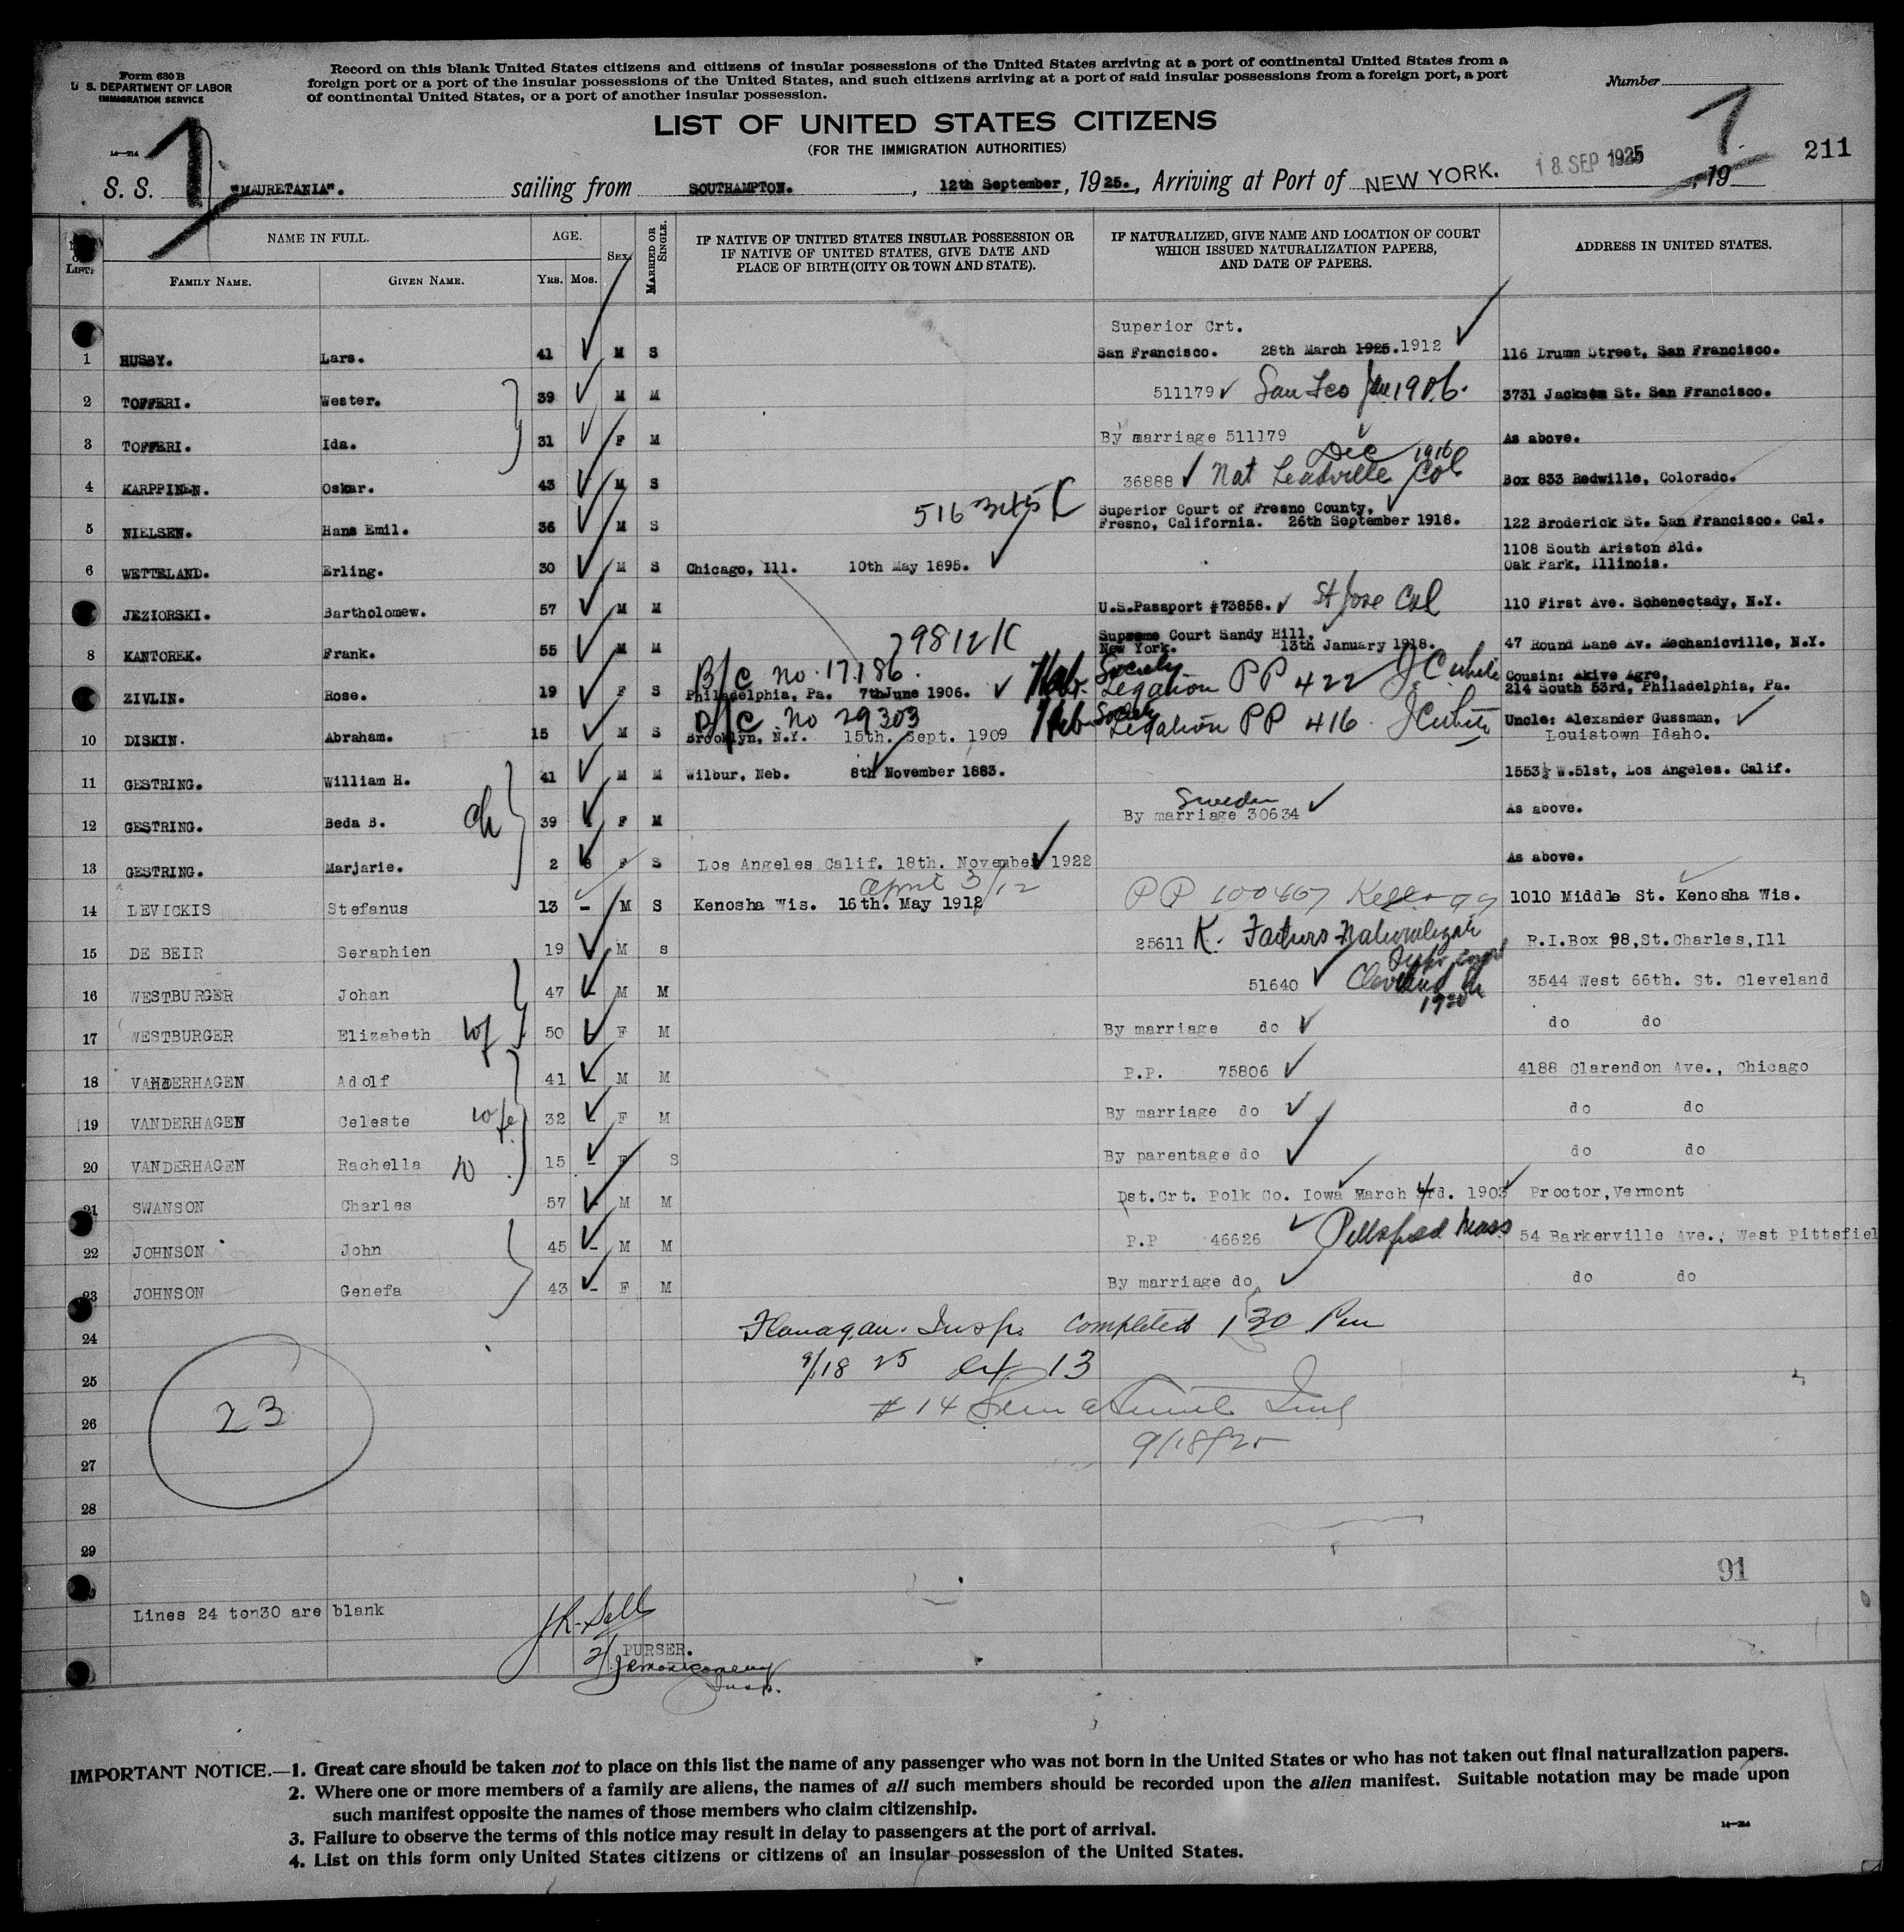 Form 630 B
U. S. DEPARTMENT OF LABOR
IMMIGRATION SERVICE
Record on this blank United States citizens and citizens of insular possessions of the United States arriving at a port of continental United States from a
foreign port or a port of the insular possessions of the United States, and such citizens arriving at a port of said insular possessions from a foreign port, a port
of continental United States, or a port of another insular possession.
Number
LIST OF UNITED STATES CITIZENS
(FOR THE IMMIGRATION AUTHORITIES)
14—214
7
7
211
S. S. "MAURETANIA". sailing from SOUTHAMPTON. , 12th September , 1925. , Arriving at Port of NEW YORK. 18 SEP 1925 , 19
LIST.
NAME IN FULL.
FAMILY NAME.
GIVEN NAME.
AGE.
YRS. MOS.
SEX.
MARRIED OR SINGLE.
IF NATIVE OF UNITED STATES INSULAR POSSESSION OR
IF NATIVE OF UNITED STATES, GIVE DATE AND
PLACE OF BIRTH (CITY OR TOWN AND STATE).
IF NATURALIZED, GIVE NAME AND LOCATION OF COURT
WHICH ISSUED NATURALIZATION PAPERS,
AND DATE OF PAPERS.
ADDRESS IN UNITED STATES.
Superior Crt.
1 HUSBY. Lars. 41 M S San Francisco. 28th March 1925. 1912 116 Drumm Street, San Francisco.
2 TOFFERI. Wester. 39 M M 511179 San Fco Jan 1906. 3731 Jackson St. San Francisco.
3 TOFFERI. Ida. 31 F M By marriage 511179 As above.
Dec 1916
4 KARPPINEN. Oskar. 43 M S 36888 Nat Leadville Col Box 833 Redwille, Colorado.
Superior Court of Fresno County,
5 NIELSEN. Hans Emil. 36 M S Fresno, California. 26th September 1918. 122 Broderick St. San Francisco. Cal.
1108 South Ariston Bld.
6 WETTELAND. Erling. 30 M S Chicago, Ill. 10th May 1895. Oak Park, Illinois.
JEZIORSKI. Bartholomew. 57 M M U.S.Passport #73858. St Jose Cal 110 First Ave. Schenectady, N.Y.
29812 K Supreme Court Sandy Hill,
8 KANTOREK. Frank. 55 M M New York. 13th January 1918. 47 Round Lane Av. Mechanicville, N.Y.
B/C No. 17186 Heb. Society Cousin: Akive Agre,
ZIVLIN. Rose. 19 F S Philadelphia, Pa. 7thJune 1906. Legation PP 422 J C White 214 South 53rd, Philadelphia, Pa.
B/C No 29303 Heb Society Uncle: Alexander Gussman,
10 DISKIN. Abraham. 15 M S Brooklyn, N.Y. 15th. Sept. 1909 Legation PP 416. J C White Louistown Idaho.
11 GESTRING. William H. 41 M M Wilbur, Neb. 8th November 1883. 1553½ W.51st, Los Angeles. Calif.
Sweden
12 GESTRING. Beda B. 39 F M By marriage 30634 As above.
ch
13 GESTRING. Marjarie. 2 F S Los Angeles Calif. 18th. November 1922 As above.
April 3/12
14 LEVICKIS Stefanus 13 - M S Kenosha Wis. 16th. May 1912 PP 100467 Kellogg 1010 Middle St. Kenosha Wis.
15 DE BEIR Seraphien 19 M s 25611 K. Fathers R.I.Box 98,St.Charles,Ill
16 WESTBURGER Johan 47 - M M 51640 Cleveland 3544 West 66th. St. Cleveland
17 WESTBURGER Elizabeth wf 50 - F M By marriage do do do
18 VANDERHAGEN Adolf 41 - M M P.P. 75806 4188 Clarendon Ave., Chicago
19 VANDERHAGEN Celeste wfe 32 - F M By marriage do do do
20 VANDERHAGEN Rachella 15 - F S By parentage do do do
21 SWANSON Charles 57 - M M Dst.Crt. Polk Co. Iowa March 4rd. 1903 Proctor,Vermont
22 JOHNSON John 45 - M M P.P 46626 Pittsfield Mass 54 Barkerville Ave., West Pittsfiel
23 JOHNSON Genefa 43 - F M By marriage do do do
24 Flanagan. Insp. Completed 1 30 Pm
25 9/18 25 13
26 # 14
9/18/25
23
27
28
29
91
Lines 24 ton30 are blank
PURSER.
Insp.
IMPORTANT NOTICE.—1. Great care should be taken not to place on this list the name of any passenger who was not born in the United States or who has not taken out final naturalization papers.
2. Where one or more members of a family are aliens, the names of all such members should be recorded upon the alien manifest. Suitable notation may be made upon
such manifest opposite the names of those members who claim citizenship.
3. Failure to observe the terms of this notice may result in delay to passengers at the port of arrival.
4. List on this form only United States citizens or citizens of an insular possession of the United States.
14—214